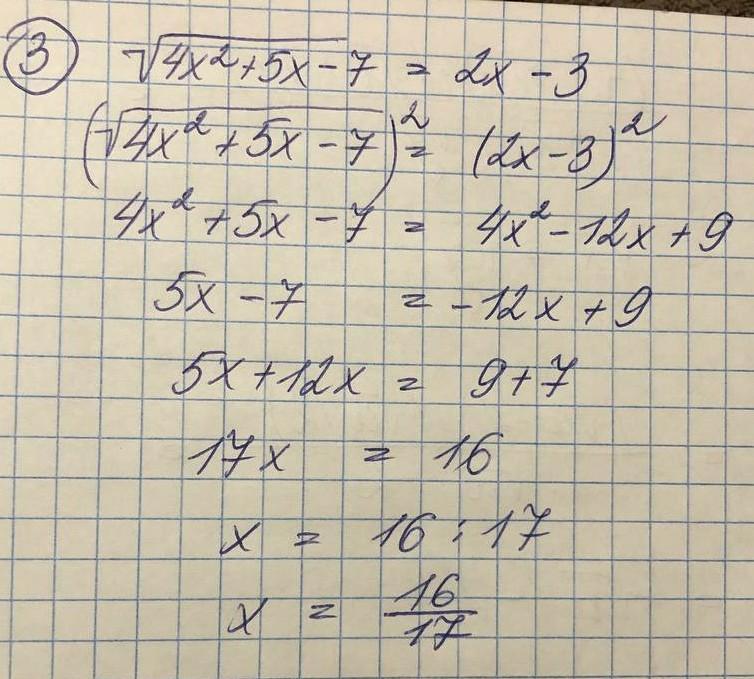 ③ √(4x²+5x-7) = 2x-3
(√(4x²+5x-7))² = (2x-3)²
4x²+5x-7 = 4x²-12x+9
5x-7 = -12x+9
5x+12x = 9+7
17x = 16
x = 16:17
x = 16/17